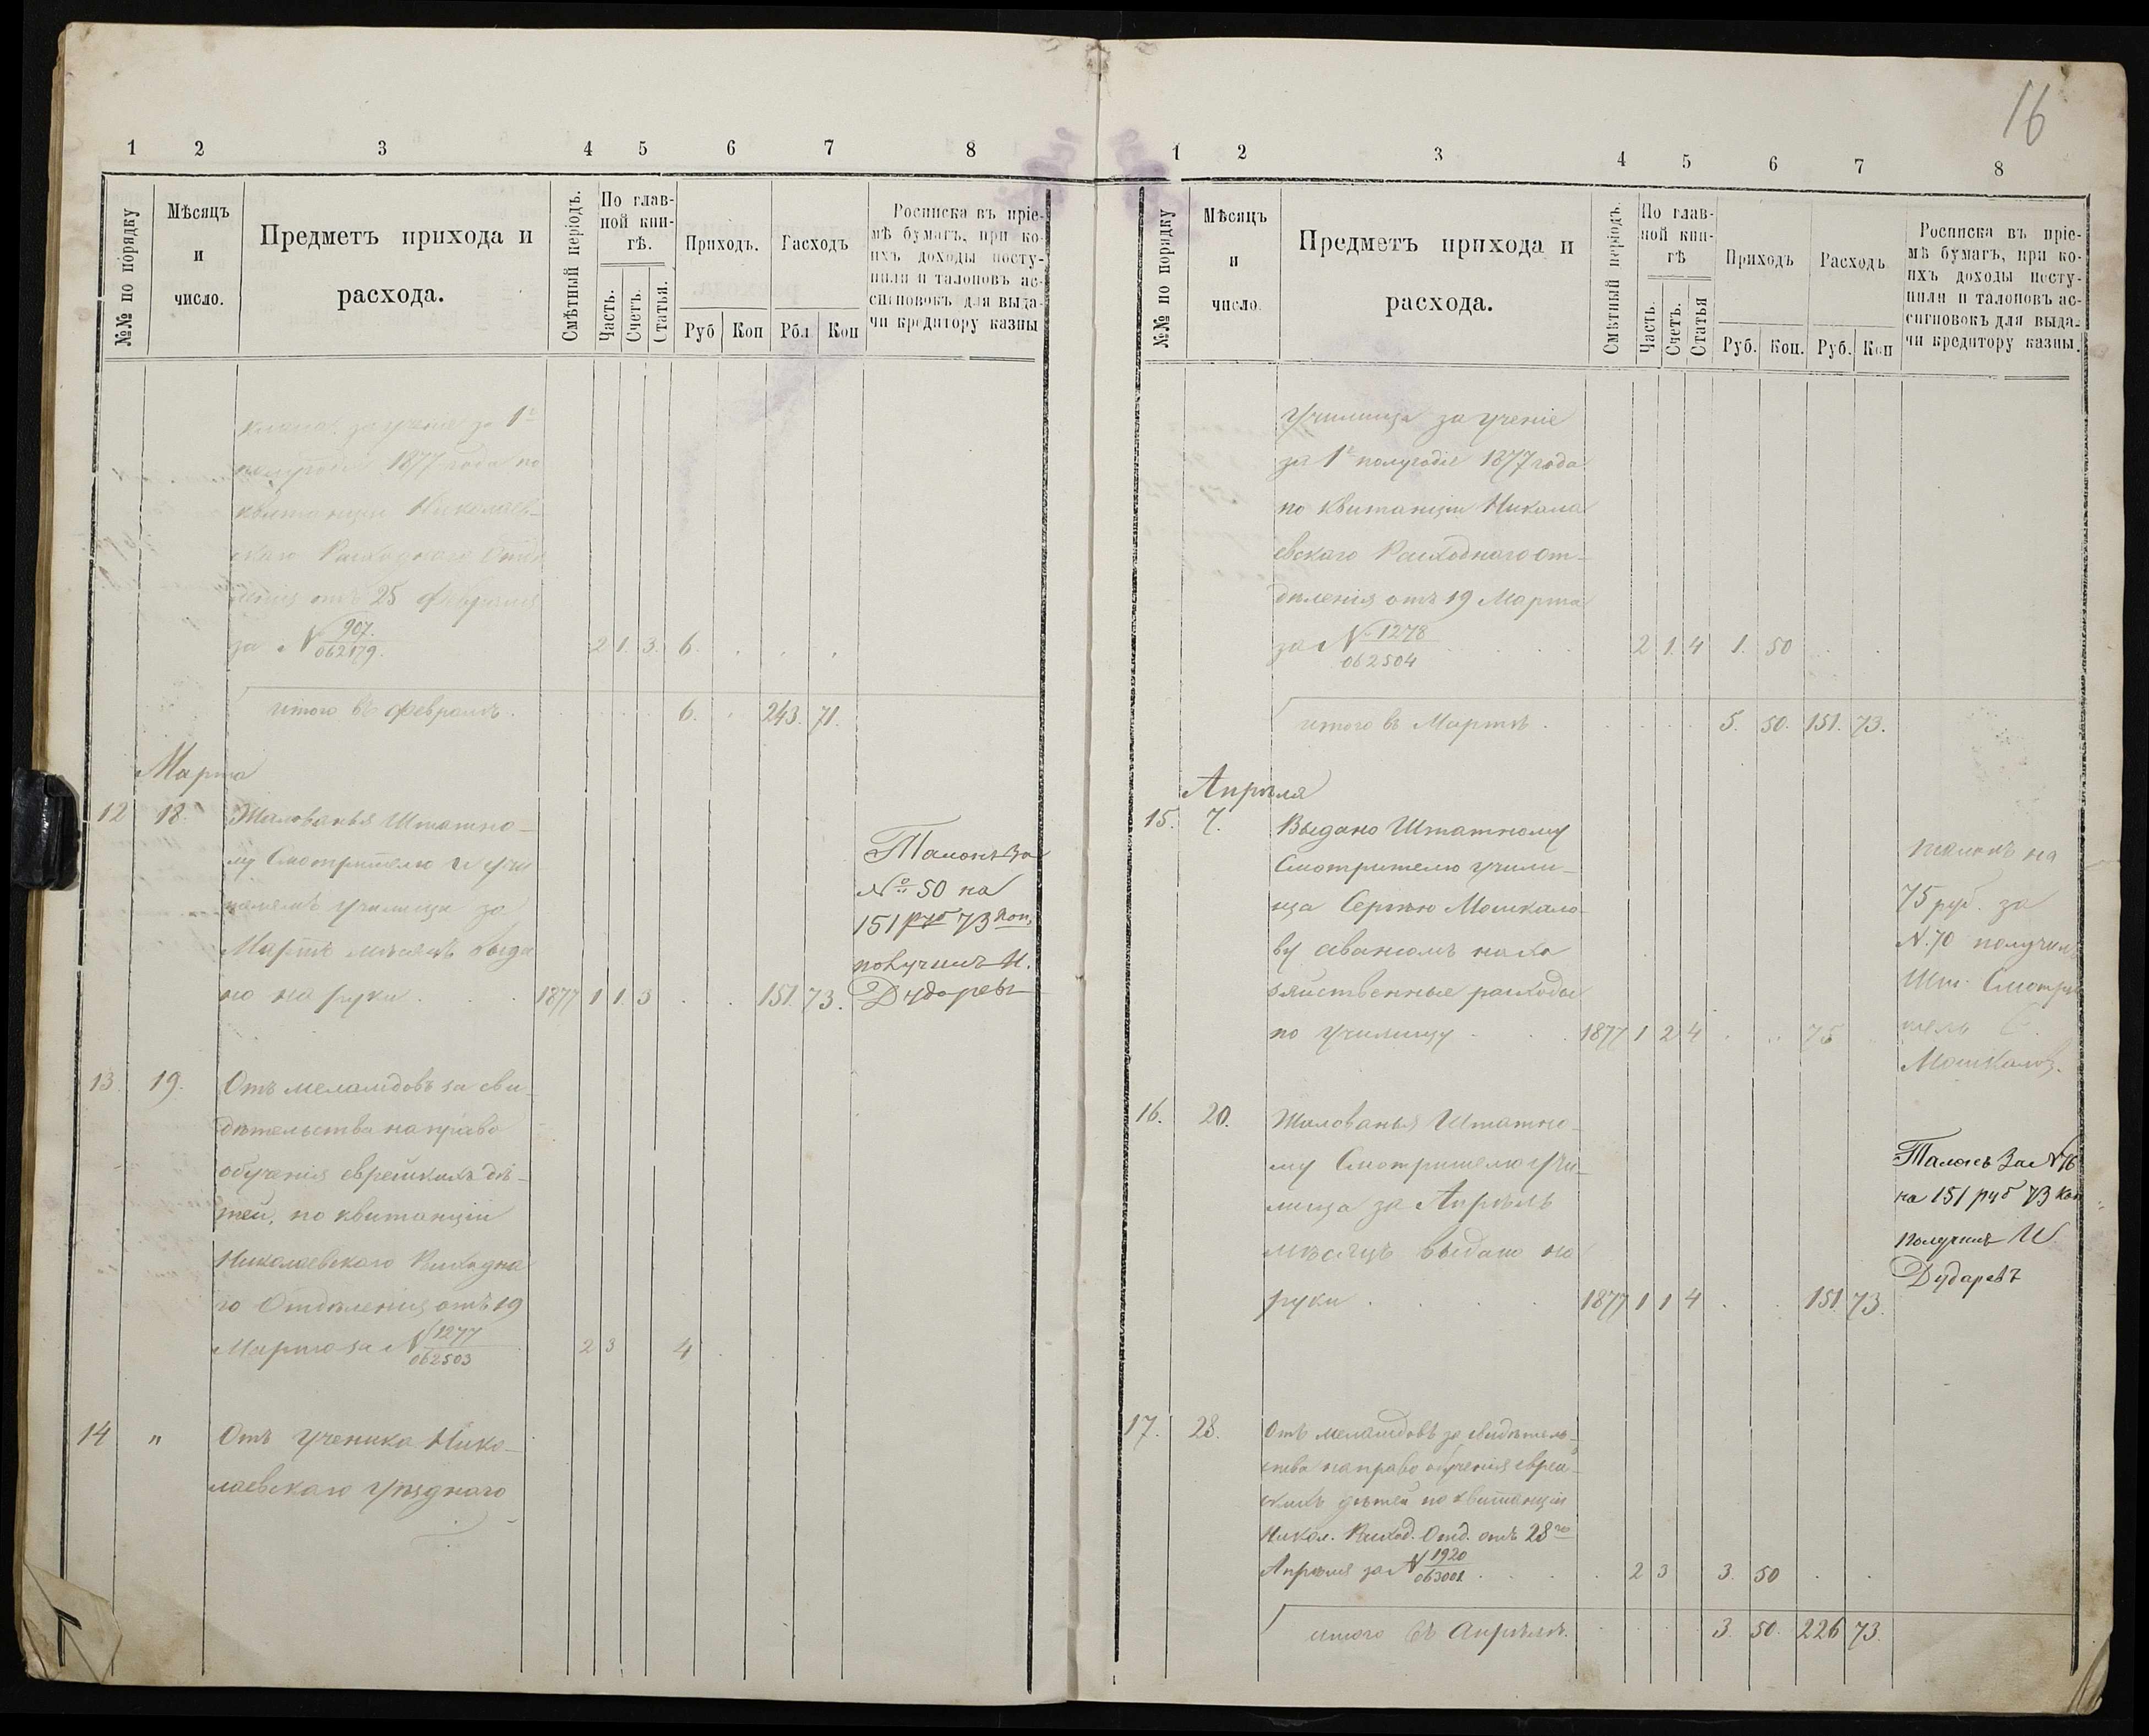 16
1 2 3 4 5 6 7 8
№№ по порядку
Мѣсяцъ
и
число.
Предметъ прихода и
расхода.
Смѣтный періодъ.
По глав-
ной кни-
гѣ.
Часть. Счетъ. Статья.
Приходъ. Расходъ
Руб Коп Рбл Коп
Росписка въ пріе-
мѣ бумагъ, при ко-
ихъ доходы посту-
пили и талоновъ ас-
сигновокъ для выда-
чи кредитору казны
класса за ученіе за 1е
полугодіе 1877 года по
квитанціи Николаев-
скаго Расходнаго Отдѣ
ленія отъ 25 Февраля
за N 907. 062179. 2 1. 3. 6.
итого въ Февралѣ. 6. 243. 71.
Марта
12 18. Жалованья Штатно-
му Смотрителю и учи
телямъ училища за
Мартъ мѣсяцъ выда
но на руки 1877 1 1. 3 151. 73.
Талонъ за
№ 50 на
151 руб 73 коп,
получилъ И.
Дударевъ
13 19. Отъ меламдовъ за сви-
дѣтельства на право
обученія еврейскихъ дѣ-
тей, по квитанціи
Николаевскаго Расходна
го Отдѣленія отъ 19
Марта за N 1277 062503 2 3 4
14 " Отъ ученика Нико-
лаевскаго уѣзднаго
1 2 3 4 5 6 7 8
№№ по порядку
Мѣсяцъ
и
число.
Предметъ прихода и
расхода.
Смѣтный періодъ.
По глав-
ной кни-
гѣ
Часть. Счетъ. Статья
Приходъ Расходъ
Руб. Коп. Руб. Коп
Росписка въ пріе-
мѣ бумагъ, при ко-
ихъ доходы посту-
пили и талоновъ ас-
сигновокъ для выда-
чи кредитору казны.
училища за ученіе
за 1е полугодіе 1877 года
по квитанціи Никола
евскаго Расходнаго От-
дѣленія отъ 19 Марта
за N 1278 062504 2 1. 4 1. 50
итого въ Мартѣ. 5. 50. 151. 73.
Апрѣля
15. 7. Выдано Штатному
Смотрителю учили-
ща Сергѣю Мошкало-
ву авансомъ на хо
зяйственные расходы
по училищу 1877 1 2 4 75
талонъ на
75 руб. за
N.70 получилъ
Шт. Смотри
тель С.
Мошкалов.
16. 20. Жалованья Штатно-
му Смотрителю учи-
лища за Апрѣль
мѣсяцъ выдано на
руки 1877 1 1 4 151 73.
Талонъ За N 76
на 151 руб 73 коп
получилъ И.
Дударевъ
17. 28. Отъ меламдовъ за свидѣтель-
ства на право обученія еврей-
скихъ дѣтей по квитанціи
Никол. Расход. Отд. отъ 28го
Апрѣля за N 1920 063001. 2 3 3. 50
итого въ Апрѣлѣ. 3. 50. 226 73.